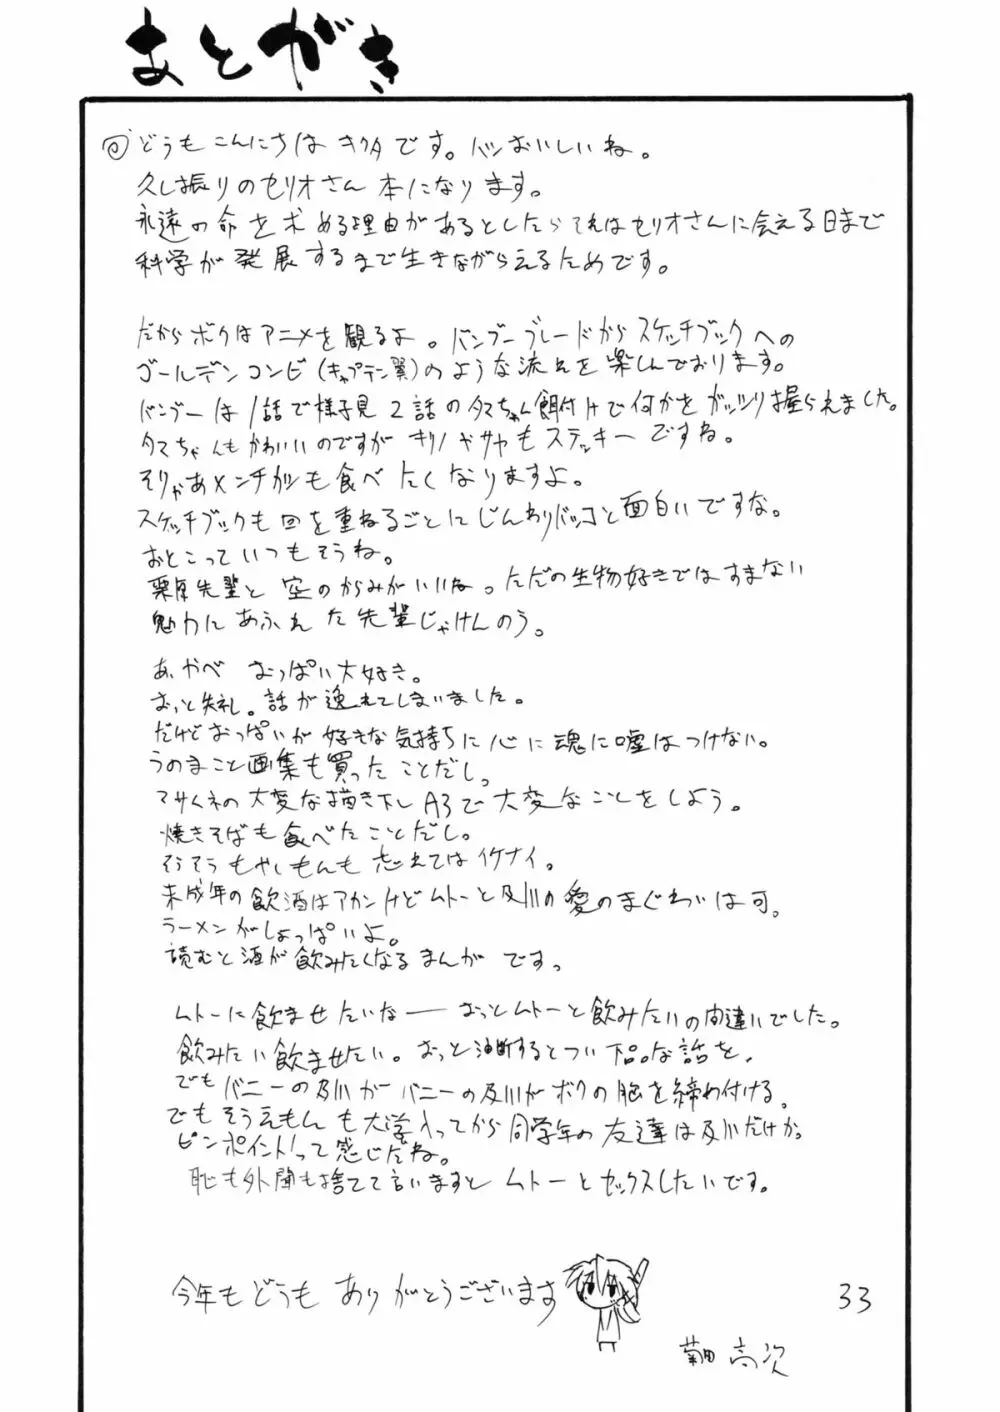 あとがき
どうもこんにちはキクタです。パンおいしいね。
久し振りのセリオさん本になります。
永遠の命を求める理由があるとしたらそれはセリオさんに会える日まで
科学が発展するまで生きながらえるためです。
だからボクはアニメを観るよ。バンブーブレードからスケッチブックへの
ゴールデンコンビ(キャプテン翼)のような流れを楽しんでおります。
バンブーは1話で様子見2話のタマちゃん餌付けで何かをガッツリ握られました。
タマちゃんもかわいいのですがキリノやサヤもステッキーですね。
そりゃあメンチカツも食べたくなりますよ。
スケッチブックも回を重ねるごとにじんわりバッコンと面白いですな。
おとこっていつもそうね。
栗原先輩と空のからみがいいね。ただの生物好きではすまない
魅力にあふれた先輩じゃけんのう。
あ、やべ おっぱい大好き。
おっと失礼。話が逸れてしまいました。
だけどおっぱいが好きな気持ちに心に魂に嘘はつけない。
うのまこと画集も買ったことだし。
マサムネの大変な描き下しA3で大変なことをしよう。
焼きそばも食べたことだし。
そうそうもやしもんも忘れてはイケナイ。
未成年の飲酒はアカンけどムトーと及川の愛のまぐわいは可。
ラーメンがしょっぱいよ。
読むと酒が飲みたくなるまんがです。
ムトーに飲ませたいなーーおっとムトーと飲みたいの間違いでした。
飲みたい飲ませたい。おっと油断するとつい下品な話を。
でもバニーの及川がバニーの及川がボクの胸を締め付ける。
でもそうえもんも大学入ってから同学年の友達は及川だけか。
ピンポイントって感じだね。
恥も外聞も捨てて言いますとムトーとセックスしたいです。
今年もどうもありがとうございます
33
菊田高次